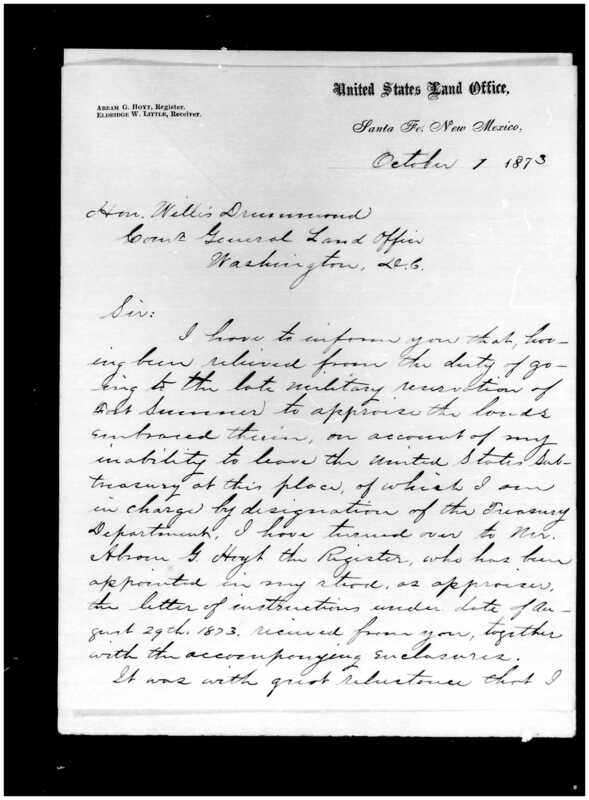 United States Land Office,
Abram G. Hoyt, Register.
Eldridge W. Little, Receiver.
Santa Fe, New Mexico,
October 7 1873
Hon. Willis Drummond
Comr General Land Office
Washington, D.C.
Sir:
I have to inform you that, hav-
ing been relieved from the duty of go-
ing to the late military reservation of
Fort Sumner to appraise the lands
embraced therein, on account of my
inability to leave the United States Sub-
treasury at this place, of which I am
in charge by designation of the Treasury
Department, I have turned over to Mr.
Abram G. Hoyt the Register, who has been
appointed in my stead, as appraiser,
the letter of instructions under date of Au-
gust 29th. 1873. received from you, together
with the accompanying enclosures.
It was with great reluctance that I